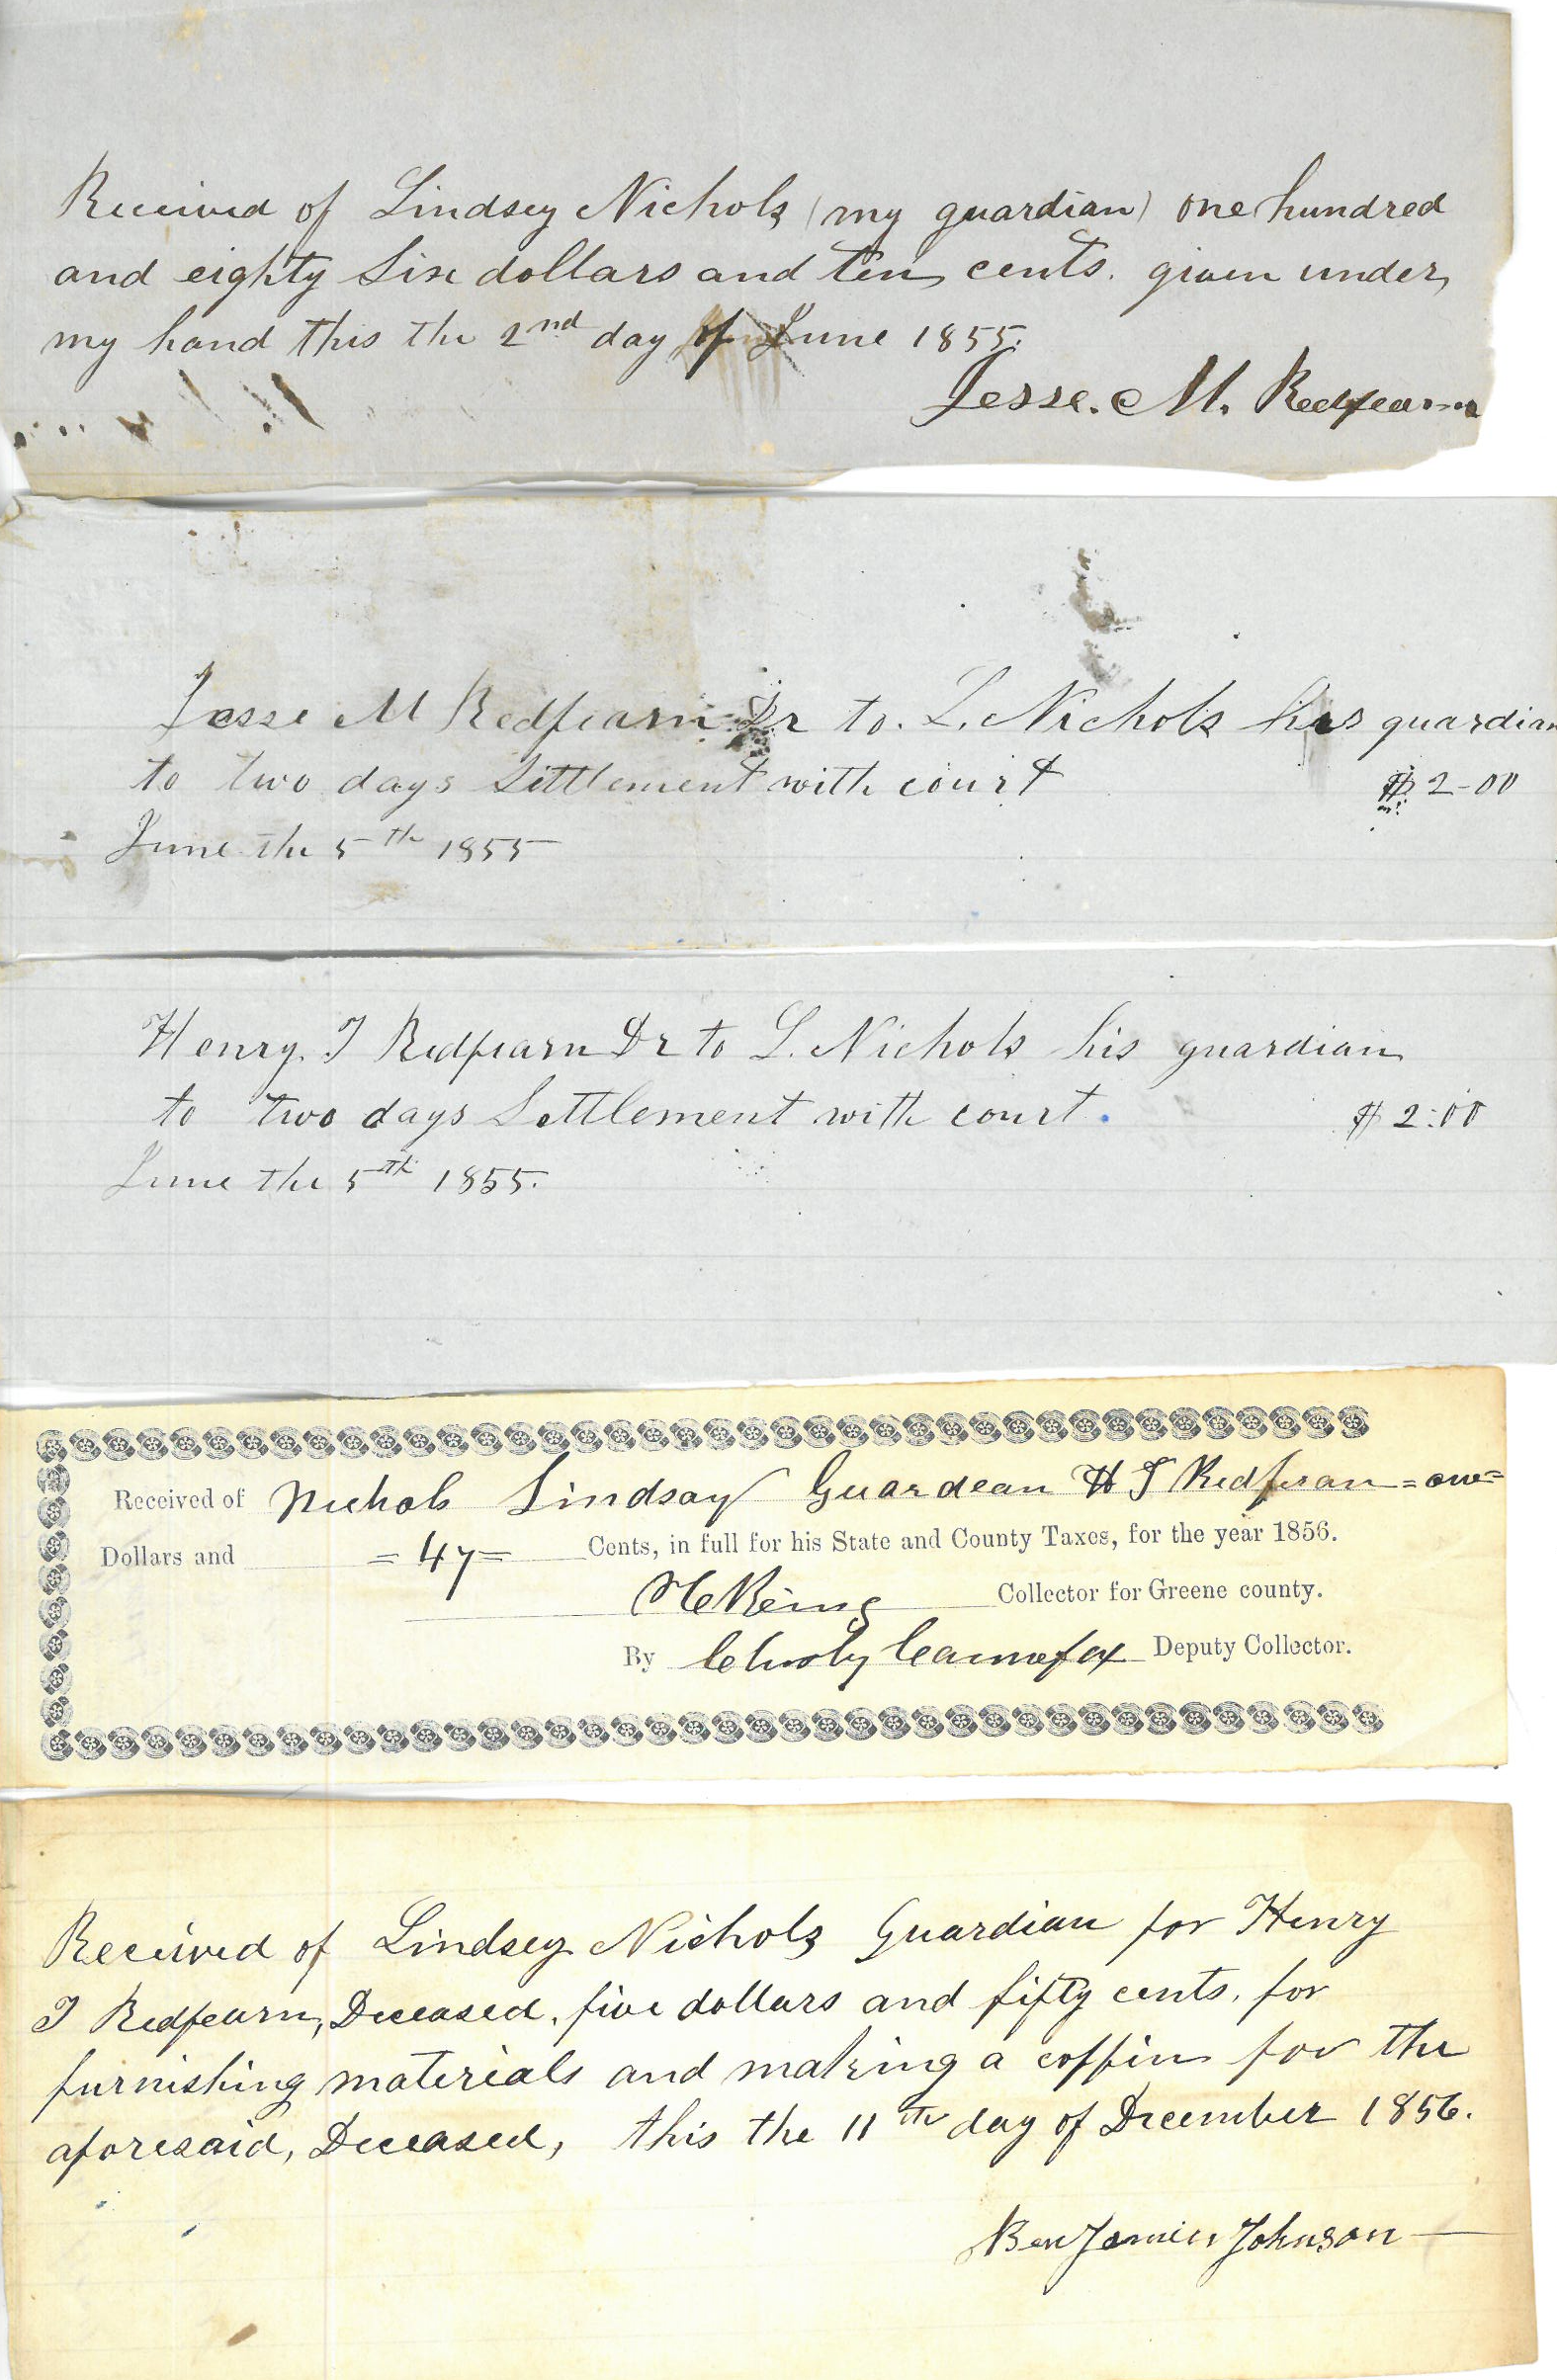 Received of Lindsey Nichols (my guardian) one hundred
and eighty Six dollars and ten cents. given under
my hand this the 2nd day of June 1855.
Jesse. M. Redfearn
Jesse M Redfearn Dr to. L. Nichols his guardian
to two days Settlement with court $ 2-00
June the 5th 1855
Henry. T Redfearn Dr to L. Nichols his guardian
to two days Settlement with court. $ 2:00
June the 5th 1855.
Received of Nichols Lindsay Guardean H T Redfearan = one=
Dollars and = 47= Cents, in full for his State and County Taxes, for the year 1856.
Collector for Greene county.
By Cannefax Deputy Collector.
Received of Lindsey Nichols Guardian for Henry
T Redfearn, Deceased, five dollars and fifty cents, for
furnishing materials and making a coffin for the
aforesaid, Deceased, this the 11th day of December 1856.
Benjamin Johnson